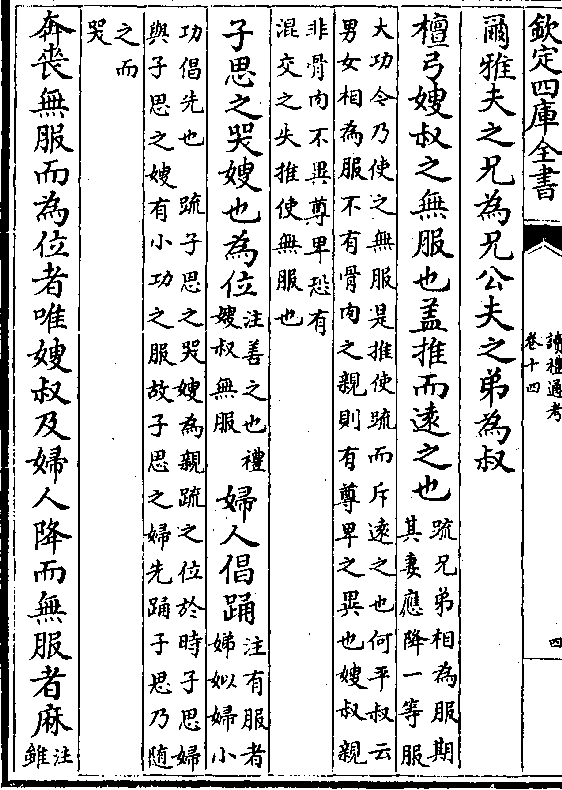 欽定四庫全書
讀禮通考
卷十四
四
爾雅夫之兄為兄公夫之弟為叔
檀弓嫂叔之無服也蓋推而遠之也
疏兄弟相為服期
其妻應降一等服
大功令乃使之無服是推使疏而斥遠之也何平叔云
男女相為服不有骨肉之親則有尊卑之異也嫂叔親
非骨肉不異尊卑恐有
混交之失推使無服也
子思之哭嫂也為位
注善之也禮
嫂叔無服
婦人倡踊
注有服者
娣姒婦小
功倡先也 疏子思之哭嫂為親疏之位於時子思婦
與子思之嫂有小功之服故子思之婦先踊子思乃隨
之而
哭
奔喪無服而為位者唯嫂叔及婦人降而無服者麻
注
雖